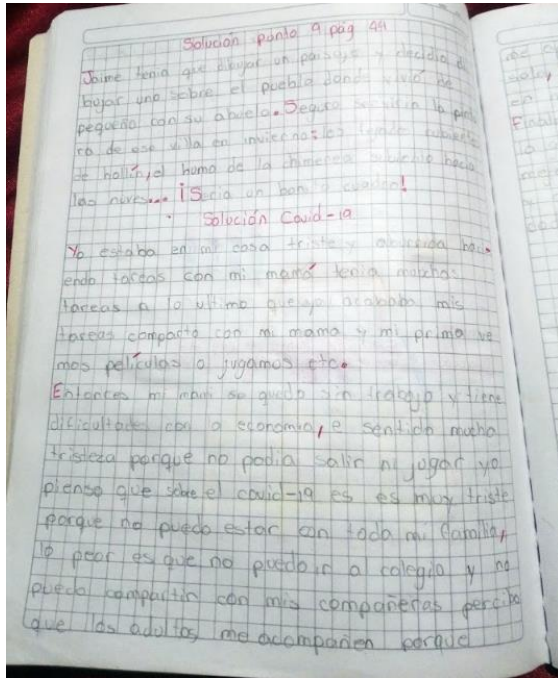 Solución punto 9 pág 44
Jaime tenia que dibujar un paisaje y decidio di
bujar uno sobre el pueblo donde vivió de
pequeño con su abuelo. Seguro la
ra de ese villa en invierno: los
de hollín, el humo de la chimenea subiendo hacia
las nuves... ¡Seria un bonito cuadro!
Solución Covid-19
Yo estaba en mi casa triste y aburrida haci
endo tareas con mi mamá tenia muchas
tareas a lo ultimo que yo acababa mis
tareas comparto con mi mama y mi primo ve
mos películas o jugamos etc.
Entonces mi mami se quedo sin trabajo y tiene
dificultades con la economia, e sentido mucha
tristeza porque no podia salir ni jugar yo
pienso que sobre el covid-19 es es muy triste
porque no puedo estar con toda mi familia,
lo peor es que no puedo ir a colegio y no
puedo compartir con mis compañeras percibo
que los adultos me acompañen porque